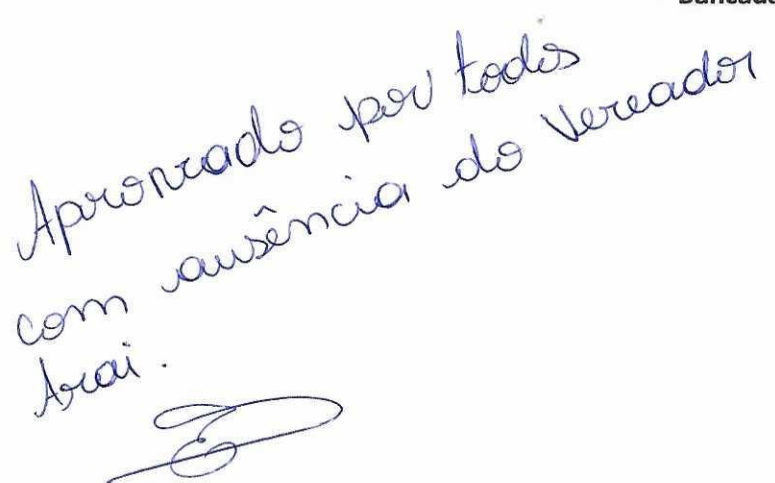 Aprovado por todos
com ausência do Vereador
Arai.